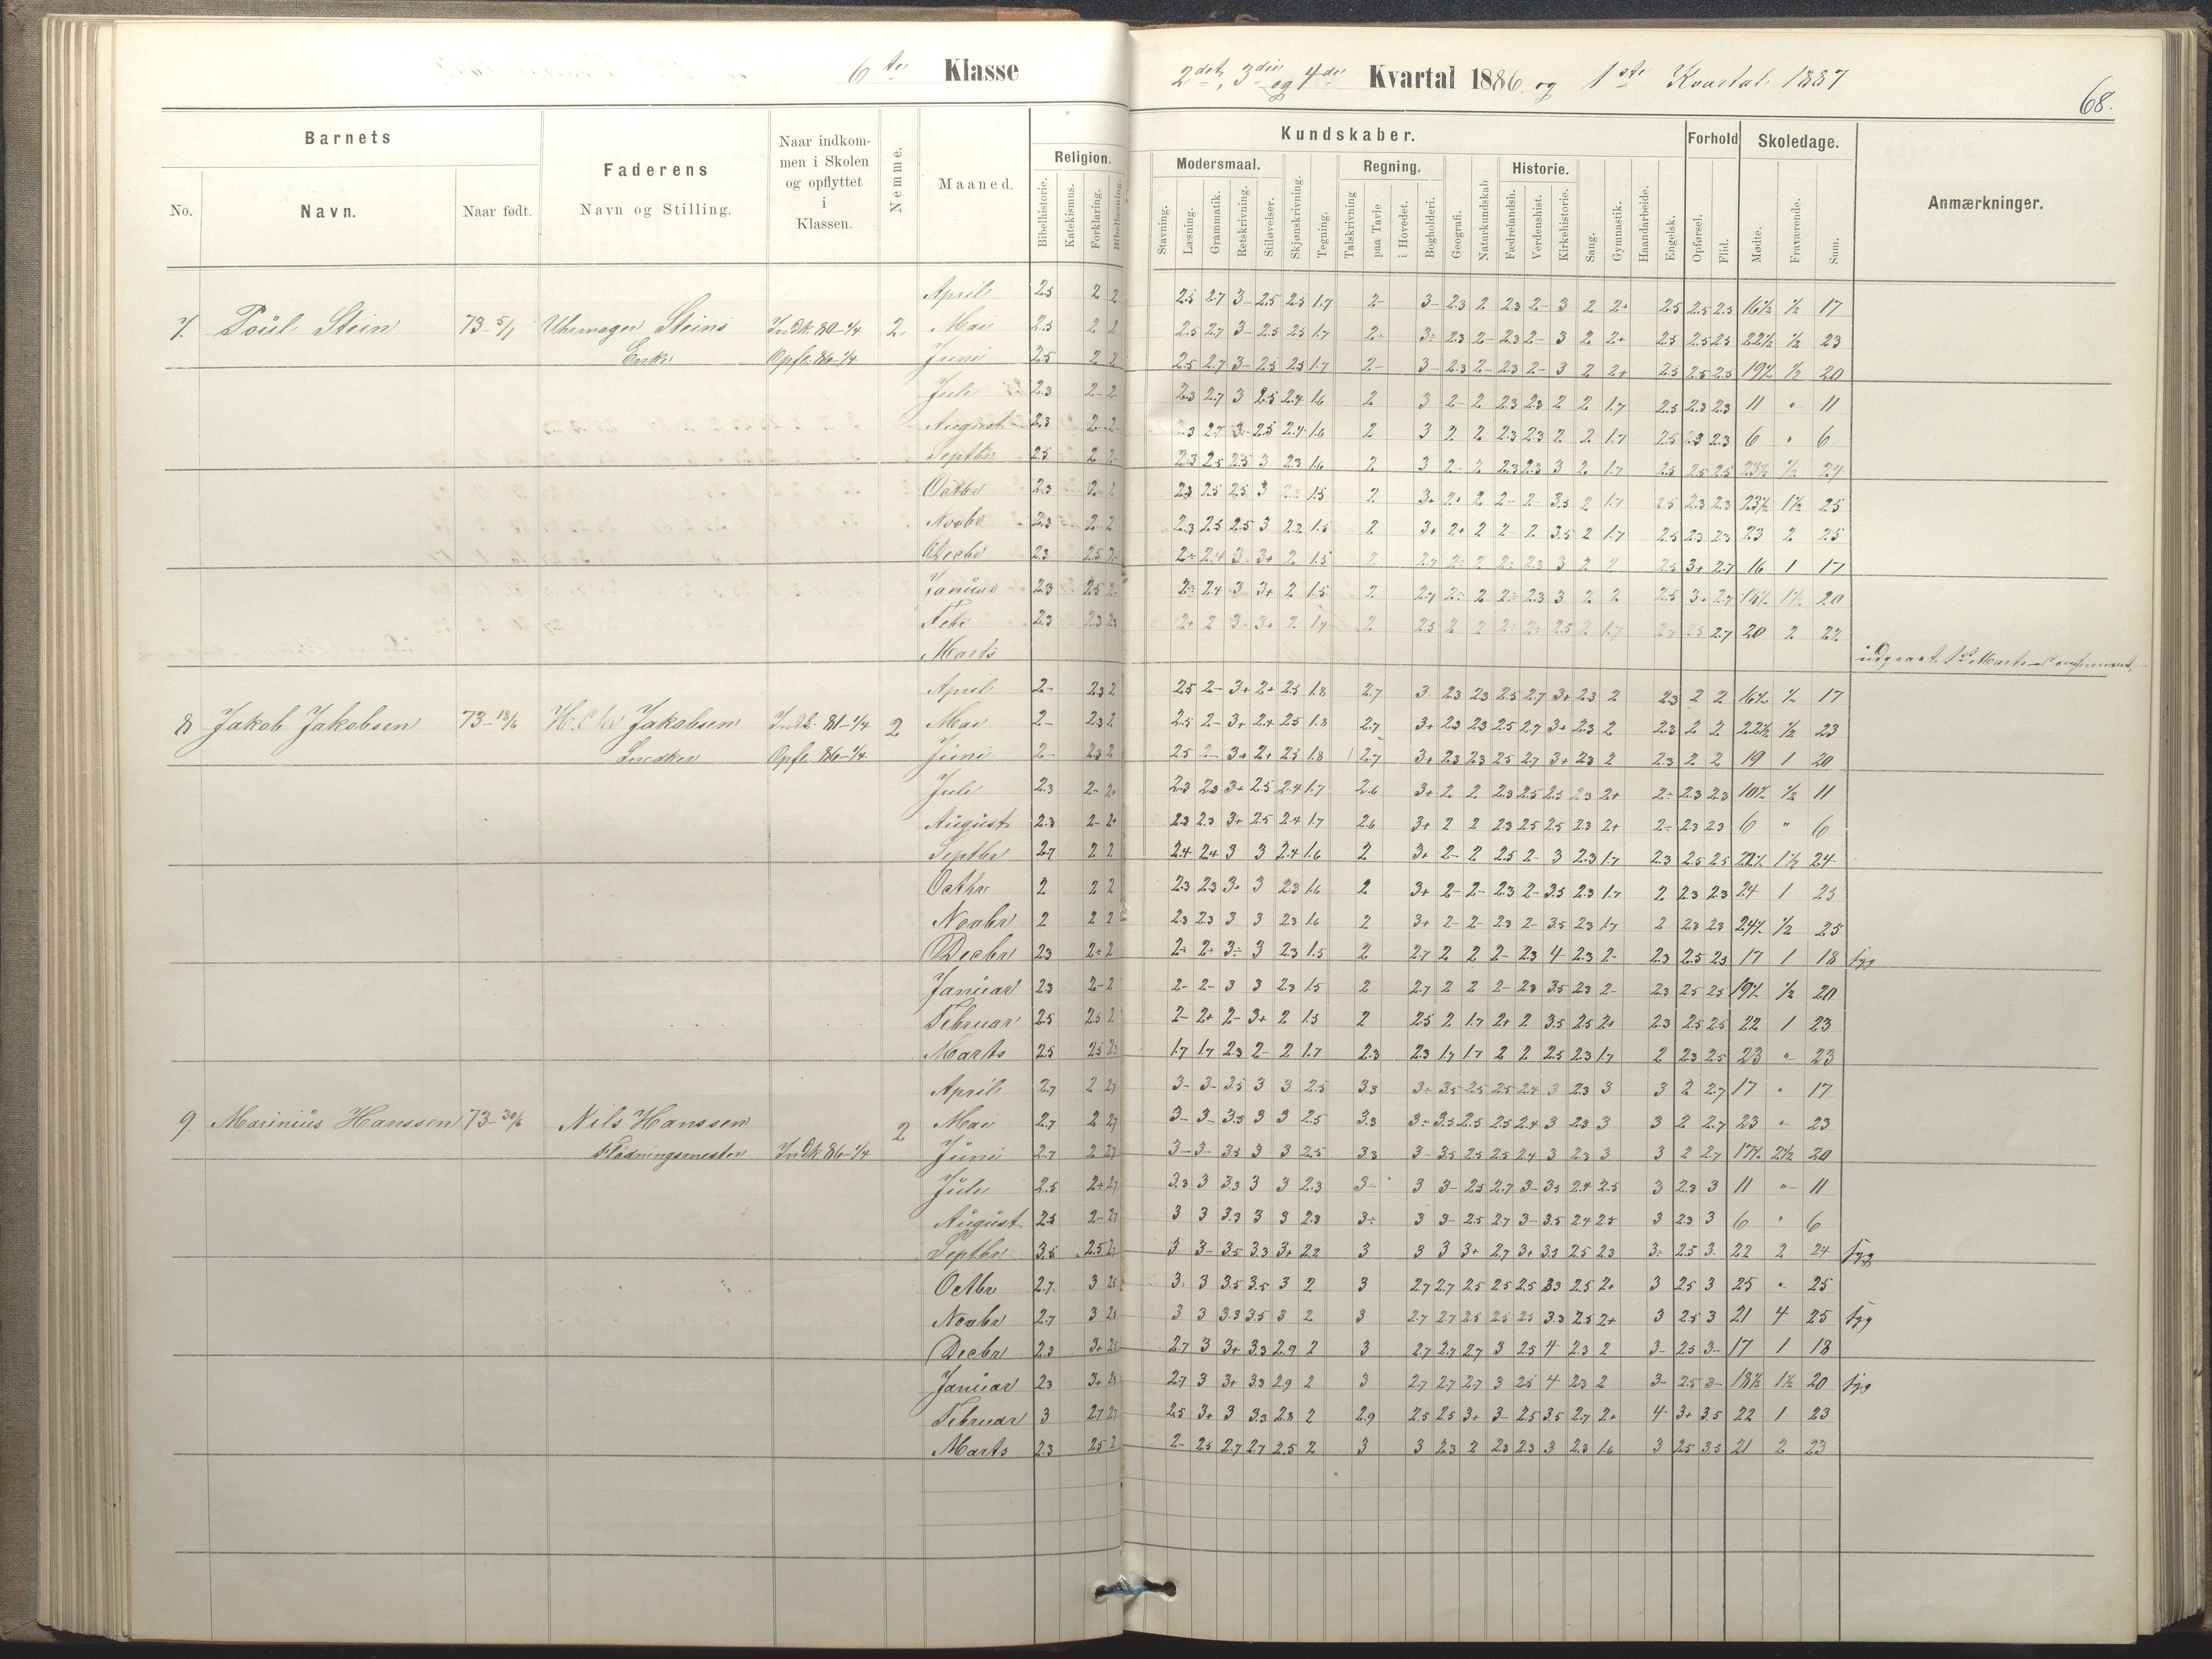 6te Klasse
2det, 3die og 4de Kvartal 1886 og 1ste Kvartal 1887
68.
Barnets
Faderens
Naar indkommen i Skolen og opflyttet i Klassen.
Nemme.
Maaned.
Religion.
Kundskaber.
Forhold
Skoledage.
Anmærkninger.
No.
Navn.
Naar født.
Navn og Stilling.
Bibelhistorie.
Katekismus.
Forklaring.
Bibellæsning.
Modersmaal.
Regning.
Historie.
Stavning.
Læsning.
Grammatik.
Retskrivning.
Stiløvelser.
Skjønskrivning.
Tegning.
Talskrivning
paa Tavle
i Hovedet.
Bogholderi.
Geografi.
Naturkundskab
Fædrelandsh.
Verdenshist.
Kirkehistorie.
Sang.
Gymnastik.
Haandarbeide.
Engelsk.
Opførsel.
Flid.
Mødte.
Fraværende.
Sum.
April 2.5 2 2 2.5 2.7 3- 2.5 2.5 1.7 2- 3- 2.3 2 2.3 2- 3 2 2+ 2.5 2.5 2.5 16½ ½ 17
7. Poül Stein 73-5/1 Uhrmager Steins Indk. 80-1/4 2. Mai 2.5 2 2 2.5 2.7 3- 2.5 2.5 1.7 2÷ 3÷ 2.3 2- 2.3 2- 3 2 2+ 2.5 2.5 2.5 22½ ½ 23
Enke Opfl. 86-1/4 Juni 2.5 2 2 2.5 2.7 3- 2.5 2.5 1.7 2- 3- 2.3 2- 2.3 2- 3 2 2+ 2.5 2.5 2.5 19½ ½ 20
Juli 2.3 2- 2 2.3 2.7 3 2.5 2.4 1.6 2 3 2- 2 2.3 2.3 2 2 1.7 2.5 2.3 2.3 11 " 11
August 2.3 2- 2- 2.3 2.7 3- 2.5 2.4 1.6 2 3 2 2 2.3 2.3 2 2 1.7 2.5 2.3 2.3 6 " 6
Septbr 2.5 2 2- 2.3 2.5 2.5 3 2.3 1.6 2 3 2- 2 2.3 2.3 3 2 1.7 2.5 2.5 2.5 23½ ½ 24
Octbr 2.3 2- 2 2.3 2.5 2.5 3 1.5 2 3+ 2+ 2 2- 2- 3.5 2 1.7 2.5 2.3 2.3 23½ 1½ 25
Novbr 2.3 2 2 2.3 2.5 2.5 3 2.2 1.5 2 3+ 2+ 2 2- 2 3.5 2 1.7 2.5 2.3 2.3 23 2 25
Decbr 2.3 2.5 2- 2÷ 2.4 3 3+ 2 1.5 2 2.7 2÷ 2 2÷ 2.3 3 2 2 2.5 3+ 2.7 16 1 17
Januar 2.3 2.5 2- 2÷ 2.4 3 3+ 2 1.5 2 2.7 2÷ 2 2÷ 2.3 3 2 2 2.5 3+ 2.7 18½ 1½ 20
Febr 2.3 2.3 2.3 2+ 2 3- 3+ 2 1.7 2 2.5 2 2 2÷ 2÷ 2.5 2 1.7 2.7 20 2 22
Marts udgaaet 1ste Marts
April 2- 2.3 2 2.5 2- 3+ 2+ 2.5 1.8 2.7 3 2.3 2.3 2.5 2.7 3+ 2.3 2 2.3 2 2 16½ ½ 17
8 Jakob Jakobsen 73-18/6 Jakobsen Indk. 81-1/4 2 Mai 2- 2.3 2 2.5 2- 3+ 2.4 2.5 1.8 2.7 3+ 2.3 2.3 2.5 2.7 3+ 2.3 2 2.3 2 2 22½ ½ 23
Snedker Opfl. 86-1/4 Juni 2- 2.3 2 2.5 2- 3+ 2+ 2.5 1.8 2.7 3+ 2.3 2.3 2.5 2.7 3+ 2.3 2 2.3 2 2 19 1 20
Juli 2.3 2- 2+ 2.3 2.3 3+ 2.5 2.4 1.7 2.6 3+ 2 2 2.3 2.5 2.5 2.3 2+ 2÷ 2.3 2.3 10½ ½ 11
August 2.3 2- 2+ 2.3 2.3 3+ 2.5 2.4 1.7 2.6 3+ 2 2 2.3 2.5 2.5 2.3 2+ 2÷ 2.3 2.3 6 " 6
Septbr 2.7 2 2 2.4 2.4 3 3 2.4 1.6 2 3+ 2- 2 2.5 2- 3 2.3 1.7 2.3 2.5 2.5 22½ 1½ 24
Octbr 2 2 2 2.3 2.3 3+ 3 2.3 1.6 2 3+ 2- 2- 2.3 2- 3.5 2.3 1.7 2 2.3 2.3 24 1 25
Novbr 2 2 2 2.3 2.3 3 3 2.3 1.6 2 3+ 2- 2- 2.3 2- 3.5 2.3 1.7 2 2.3 2.3 24½ ½ 25
Decbr 2.3 2÷ 2 2÷ 2÷ 3÷ 3 2.3 1.5 2 2.7 2 2 2- 2.3 4 2.3 2- 2.3 2.5 2.5 17 1 18 syg
Januar 2.3 2- 2 2- 2- 3 3 2.3 1.5 2 2.7 2 2 2- 2.3 3.5 2.3 2- 2.3 2.5 2.5 19½ ½ 20
Februar 2.5 2.5 2 2- 2+ 2- 3+ 2 1.5 2 2.5 2 1.7 2+ 2 3.5 2.5 2+ 2.3 2.5 2.5 22 1 23
Marts 2.5 2.5 2.3 1.7 1.7 2.3 2- 2 1.7 2.3 2.3 1.7 1.7 2 2 2.5 2.3 1.7 2 2.3 2.5 23 " 23
April 2.7 2 2.7 3- 3- 3.5 3 3 2.5 3.3 3÷ 3.5 2.5 2.5 2.4 3 2.3 3 3 2 2.7 17 " 17
9. Marinius Hanssen 73-30/6 Nils Hanssen 2 Mai 2.7 2 2.7 3- 3- 3.5 3 3 2.5 3.3 3÷ 3.5 2.5 2.5 2.4 3 2.3 3 3 2 2.7 23 " 23
Flødningsmester Indk. 86-1/4 Juni 2.7 2 2.7 3- 3- 3.5 3 3 2.5 3.3 3- 3.5 2.5 2.5 2.4 3 2.3 3 3 2 2.7 17½ 2½ 20
Juli 2.5 2÷ 2.7 3.3 3 3.3 3 3 2.3 3÷ 3 3- 2.5 2.7 3- 3.5 2.4 2.5 3 2.3 3 11 " 11
August 2.5 2- 2.7 3 3 3.3 3 3 2.3 3÷ 3 3- 2.5 2.7 3- 3.5 2.4 2.5 3 2.3 3 6 " 6
Septbr 3.5 2.5 2.7 3 3- 3.5 3.3 3+ 2.2 3 3 3 3+ 2.7 3+ 3.5 2.5 2.3 3÷ 2.5 3 22 2 24 syg
Octbr 2.7 3 2.5 3 3 3.5 3.5 3 2 3 2.7 2.7 2.5 2.5 2.5 3.3 2.5 2+ 3 2.5 3 25 " 25
Novbr 2.7 3 2.5 3 3 3.3 3.5 3 2 3 2.7 2.7 2.5 2.5 2.5 3.3 2.5 2+ 3 2.5 3 21 4 25 syg
Decbr 2.3 3+ 2.5 2.7 3 3+ 3.3 2.9 2 3 2.7 2.7 2.7 3 2.5 4 2.3 2 3- 2.5 3- 17 1 18
Januar 2.3 3+ 2.5 2.7 3 3+ 3.3 2.9 2 3 2.7 2.7 2.7 3 2.5 4 2.3 2 3- 2.5 3- 18½ 1½ 20 syg
Februar 3 2.7 2.7 2.5 3+ 3 3.3 2.8 2 2.9 2.5 2.5 3+ 3- 2.5 3.5 2.7 2+ 4 3+ 3.5 22 1 23
Marts 2.3 2.5 2 2- 2.5 2.7 2.7 2.5 2 3 3 2.3 2 2.3 2.3 3 2.3 1.6 3 2.5 3.5 21 2 23